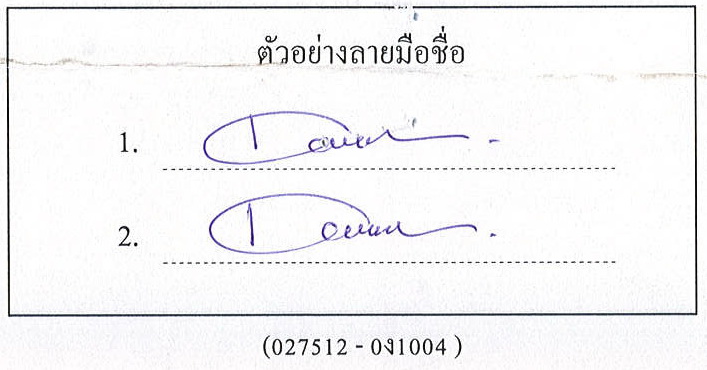 ตัวอย่างลายมือชื่อ
1.
2.
(027512 - 0ง1004 )